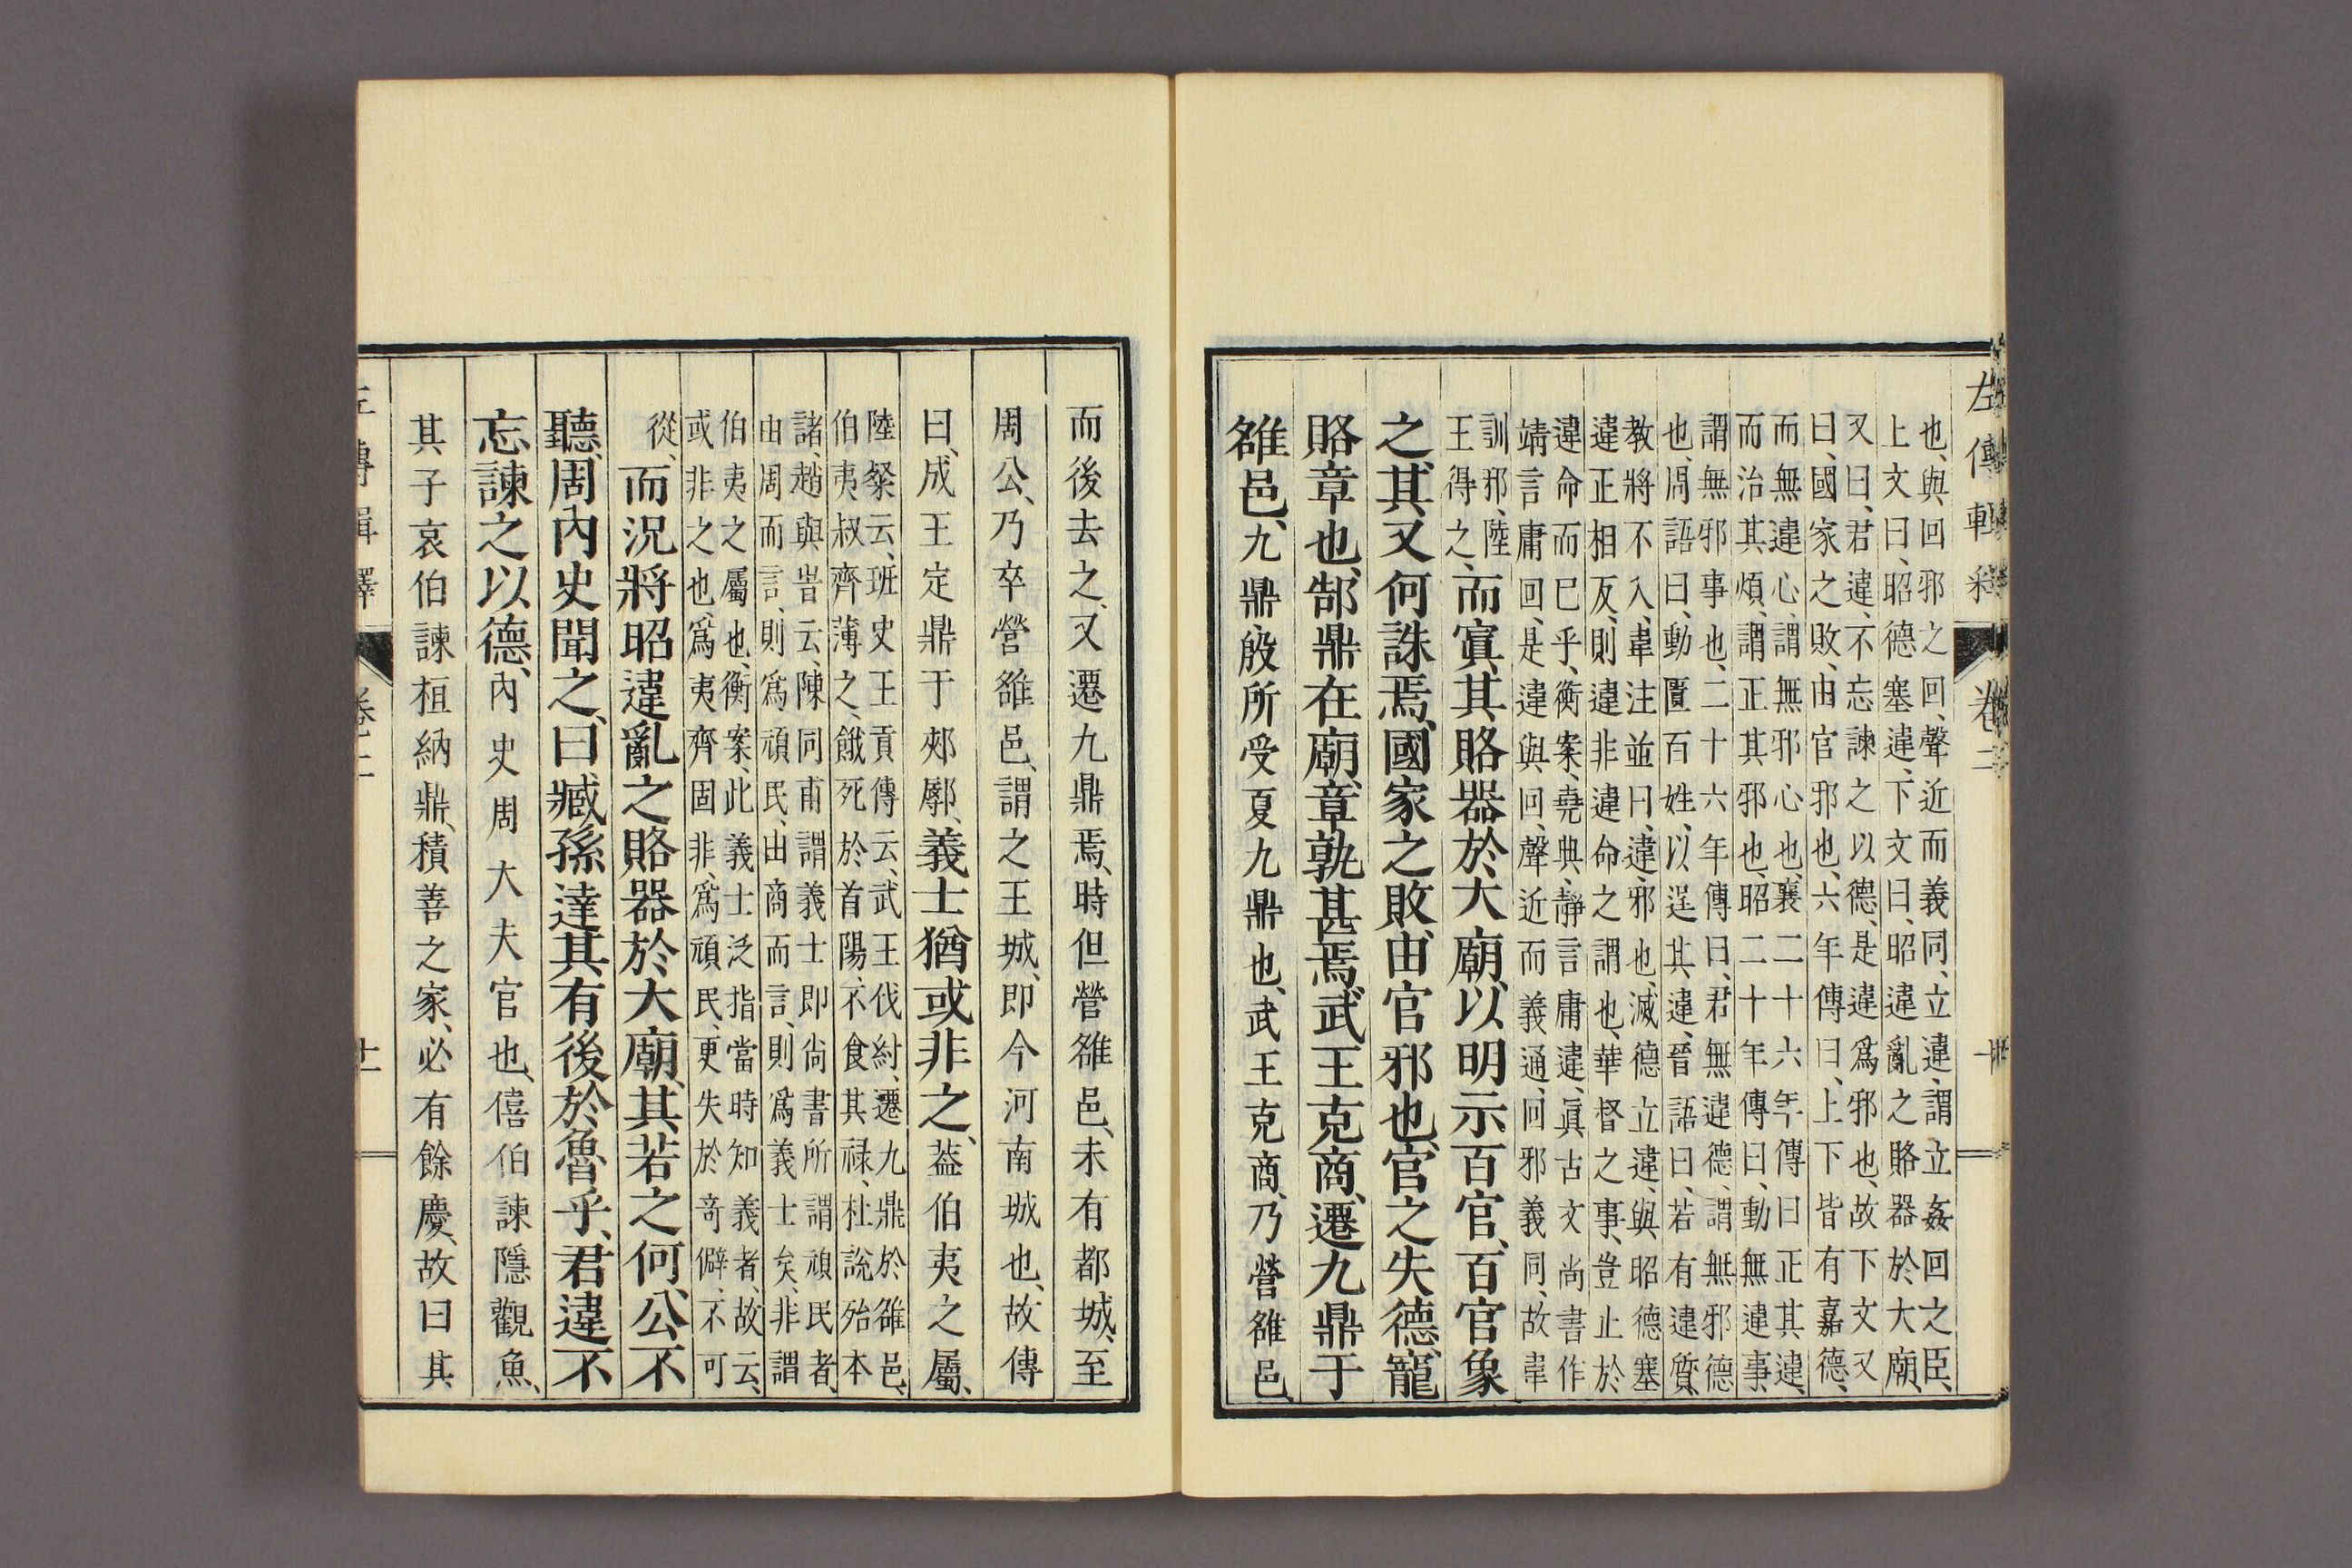 左傳輯釋 卷二
也、與回邪之回、聲近而義同、立違、謂立姦回之臣、
上文曰、昭德塞違、下文曰、昭違亂之賂器於大廟、
又曰、君違、不忘諫之以德、是違爲邪也、故下文又
曰、國家之敗、由官邪也、六年傳曰、上下皆有嘉德、
而無違心、謂無邪心也、襄二十六年傳曰、正其違、
而治其煩、謂正其邪也、昭二十年傳曰、動無違事、
謂無邪事也、二十六年傳曰、君無違德、謂無邪德
也、周語曰、動匱百姓、以逞其違、晉語曰、若有違質、
教將不入、韋注並曰、違、邪也、滅德立違、與昭德塞
違正相反、則違非違命之謂也、華督之事、豈止於
違命而已乎、衡案、堯典、靜言庸違、眞古文尚書作
靖言庸回、是違與回、聲近而義通、回邪義同、故韋
訓邪、陸
王得之、
而寘其賂器於大廟、以明示百官、百官象
之、其又何誅焉、國家之敗、由官邪也、官之失德、寵
賂章也、郜鼎在廟、章孰甚焉、武王克商、遷九鼎于
雒邑、九鼎、殷所受夏九鼎也、武王克商、乃營雒邑、
而後去之、又遷九鼎焉、時但營雒邑、未有都城、至
周公、乃卒營雒邑、謂之王城、即今河南城也、故傳
曰、成王定鼎于郟鄏、義士猶或非之、葢伯夷之屬、
陸粲云、班史王貢傳云、武王伐紂、遷九鼎於雒邑、
伯夷叔齊薄之、餓死於首陽、不食其祿、杜說殆本
諸、趙與旹云、陳同甫謂義士即尚書所謂頑民者、
由周而言、則爲頑民、由商而言、則爲義士矣、非謂
伯夷之屬也、衡案、此義士泛指當時知義者、故云、
或非之也、爲夷齊固非、爲頑民、更失於奇僻、不可
從、
而況將昭違亂之賂器於大廟、其若之何、公不
聽、周內史聞之、曰、臧孫達其有後於魯乎、君違不
忘諫之以德、內史周大夫官也、僖伯諫隱觀魚、
其子哀伯諫桓納鼎、積善之家、必有餘慶、故曰其
左傳輯釋 卷二 十一